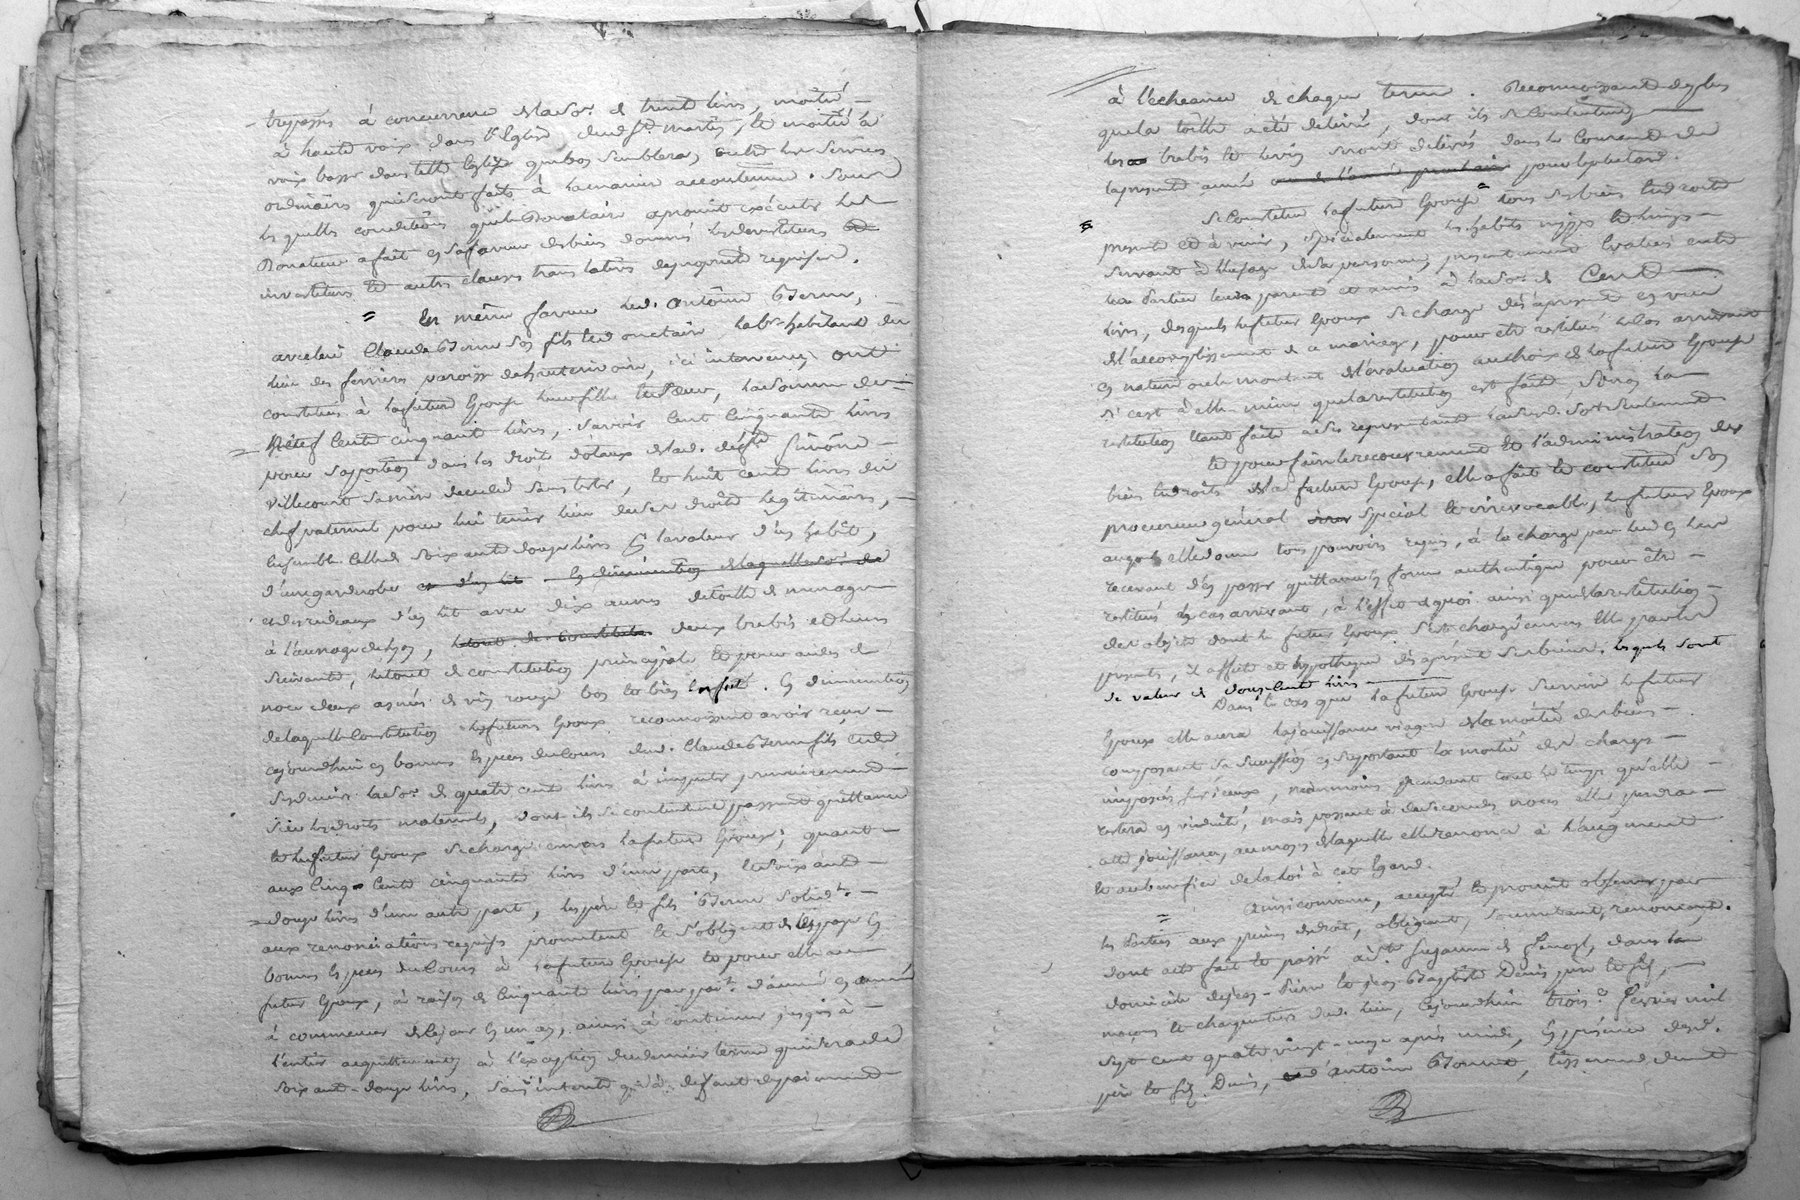 trepassés à concurrence de lad. so.e de trente livres, moitié
à haute voix dans l'Eglise dud. st. martin, et moitié à
voix basse dans telle Eglise que bon semblera, outre les services
ordinaires qui seront faits à la manière accoutumée. Sous
lesquelles conditions que le Donataire a promis exécuter le
Donateur a fait en sa faveur des biens donnés les devestitures et
investitures et autres clauses translatives de propriété requises.
En même faveur led. Antoine Bernu,
avec led. Claude Bernu son fils led. donataire, lab.r habitant du
lieu des ferriers paroisse de hauterivoire, ici intervenus ont
constitué à la future Epouse leur fille et sœur, la somme de
Neuf Cent cinquante livres, savoir Cent Cinquante livres
pour sa portion dans les droits dotaux de lad. def.te Simone
Villecourt sa mère decedée sans tester, et huit cent livres du
chef paternel pour lui tenir lieu de ses droits legitimaires,
Ensemble Celle de soixante douze livres p.r la valeur d'un habit,
d'une garderobe et d'un lit En diminution de laquelle so.e de
et des rideaux d'un lit avec dix aunes de toille de menage
à l'aunage de Lyon, deux brebis et leurs
suivants, le tout de constitution principale Et pour aides de
noces deux asnées de vin rouge bon et bien En diminution
de laquelle Constitution les futurs Epoux reconnoissent avoir reçu
cejourd'hui en bonnes Especes du Cours dud. Claude Bernu fils
ses deniers lad. so.e de quatre cent livres à imputer premierement
sur les droits maternels, dont ils se contentent passent quittance
et le futur Epoux se charge envers la future Epouse; quant
aux Cinq Cent cinquante livres d'une part, et soixante
douze livres d'une autre part, les père et fils Bernu solid.t
aux renonciations requises promettent et s'obligent de les payer En
bonnes Especes du Cours à la future Epouse et pour elle au
futur Epoux, à raison de Cinquante livres par paie.t d'année en année
à commencer de ce jour En un an, ainsi à continuer jusqu'à
l'entier acquittement à l'exception du dernier terme qui sera de
soixante-douze livres, sans interets qu'à deffaut de paiement
à l'échéance de chaque terme. Reconnoissant de plus
que la toille a été delivrée, dont ils se Contentent
les brebis et le vin seront delivrés dans le Courant de
la presente année ou de l'année prochaine pour le plus tard.
Se Constitue la future Epouse tous ses biens Et droits
presents et à venir, spécialement les habits nippes et linges
servant à l'usage de sa personne, presentement Evalués entre
les Parties leurs parents et amis à lad. so.e de Cent
livres, desquels le futur Epoux se charge dès à present en vue
de l'accomplissement de ce mariage, pour etre restitués le Cas arrivant
en nature ou le montant de l'évaluation au choix de la future Epouse
si c'est à elle-même que la restitution est faite, sinon la
restitution étant faite à ses representants lad. so.e Seulement
Et pour faire le recouvrement Et l'administration des
biens Et droits de la future Epouse, elle a fait et constitué son
procureur général special et irrevocable, le futur Epoux
auquel elle donne tous pouvoirs requis, à la charge par lui En les
recevant d'en passer quittance En forme authentique pour être
restitués le cas arrivant, à l'effet de quoi ainsi que de la restitution
des objets dont le futur Epoux s'est chargé envers Elle par les
presents, il affecte et hypotheque dès à present ses biens. lesquels sont
de valeur de douze Cent livres
Dans le cas que la future Epouse survive le futur
Epoux elle aura la jouissance viagère de la moitié des biens
composant sa succession en supportant la moitié des charges
imposées sur iceux, néanmoins pendant tout le temps qu'elle
restera en viduité, mais passant à de secondes noces elle perdra
cette jouissance, au moyen de laquelle elle renonce à l'augment
et au benefice de la loi à cet Egard.
Ainsi convenu, accepté et promis observer par
les Parties aux peines de droit, obligeant, soumettant, renonçant.
dont acte fait et passé à Ste Suzanne de Simozl, dans le
domicile de Jean-Pierre et Jean Baptiste Denis père et fils,
maçons et charpentiers dud. lieu, Cejourd'hui trois.e Fevrier mil
sept cent quatre vingt-onze après midi, En presence desd.
père et fils Denis, d'antoine Bonnet, tisserand